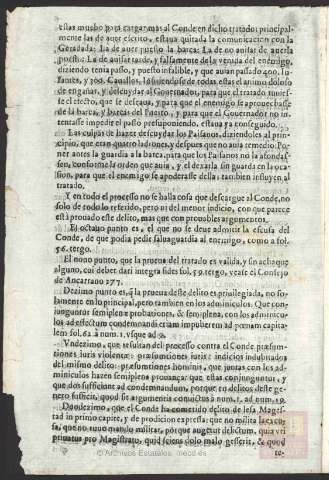 estas mucho para cargar mas al Conde en dicho tratado: principalmen
te las de auer escrito, estaua quitada la comunicacion con la
Geradada: La de auer puesto la barca: La de no auitar de auerla
puesto: La de auisar tarde, y falsamente de la venida del enemigo,
diziendo tenia passo, y puesto infalible, y que auian passado 400. In-
fantes, y 300. Cauallos, infiriendose de todas estas el animo doloso
de engañar, y descuydar al Gouernador, para que el tratado tuuies-
se el efecto, que se deseaua, y para que el enemigo se aprouechasse
de la barca, y barcas del Puerto, y para que el Gouernador no in-
tentasse impedir el passo presuponiendo, estaua ya conseguido.
Las culpas de hazer descuydar los Paisanos, diziendoles al prin-
cipio, que eran quatro ladrones, y despues que no auia remedio: Po-
ner antes la guardia a la barca, para que los Paisanos no la afondas-
sen, conforme la orden que auia, y el dexarla sin guarda en la oca-
sion, para que el enemigo se apoderasse della, tambien influyen al
tratado.
Y en todo el processo no se halla cosa que descargue al Conde, no
solo de todo lo referido, pero ni del menor indicio, con que parece
està prouado este delito, mas que con prouables argumentos.
El octauo punto es, el que no se deue admitir la escusa del
Conde, de que podia pedir saluaguardia al enemigo, como a fol.
56. tergo.
El nono punto, que la prueua del tratado es valida, y sin achaque
alguno, cui debet dari integra fides fol. 59. tergo, vease el Consejo
de Ancarrano 277.
Dezimo punto es, que la prueua deste delito es priuilegiada, no so-
lamente en lo principal, pero tambien en los adminiculos. Que con-
iunguntur semiplenæ probationes, & semiplena, con los adminicu-
los ad effectum condemnandi etiam impuberem ad pœnam capita-
lem fol. 62. à num. 1. vsque ad 9.
Vndezimo, que resultan del processo contra el Conde præsum-
tiones iuris violentæ: præsumtiones iuris: indicios indubitados
del mismo delito: præsumtiones hominis, que juntas con los ad-
miniculos hazen semiplena prouança: que estas coniunguntur, y
que dos sufficiunt ad condemnandum, porque en delitos deste ge-
nero sufficit, quod sit argumentis conuictus à num. 1. ad num. 10.
Duodezimo, que el Conde ha cometido delito de læsa Mages-
tad in primo capite, y de prodicion expressa: que no milita la escu-
sa, que no tuuo mando militar, porque augetur delictum, quia vti
priuatus pro Magistratu, quid sciens dolo malo gesserit, & quod
te-
© Archivos Estatales, mecd.es